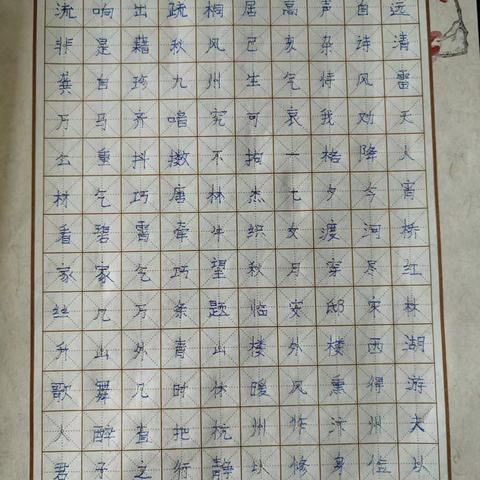 流响出疏桐居高声自远
非是藉秋风己亥杂诗清
龚自珍九州生气恃风雷
万马齐喑究可哀我劝天
公重抖擞不拘一格降人
材乞巧唐林杰七夕今宵
看碧霄牵牛织女渡河桥
家家乞巧望秋月穿尽红
丝几万条题临安邸宋林
升山外青山楼外楼西湖
歌舞几时休暖风熏得游
人醉直把杭州作汴州夫
君子之行静以修身俭以